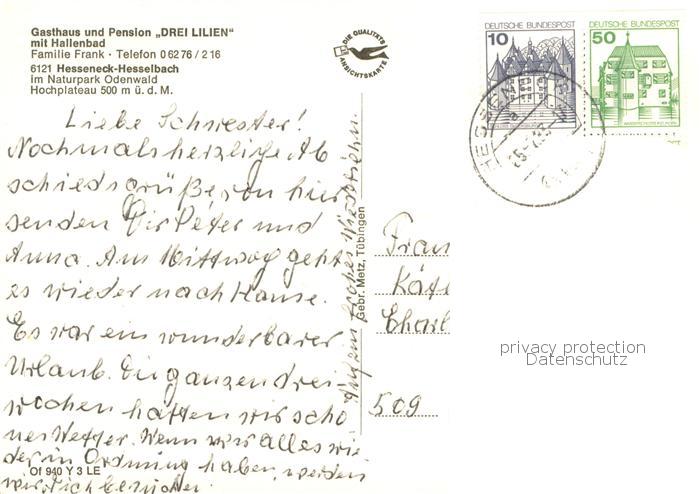 Gasthaus und Pension „DREI LILIEN"
mit Hallenbad
Familie Frank · Telefon 0 62 76 / 2 16
6121 Hesseneck-Hesselbach
im Naturpark Odenwald
Hochplateau 500 m ü. d. M.
DIE QUALITÄTS
ANSICHTSKARTE
DEUTSCHE BUNDESPOST
10
DEUTSCHE BUNDESPOST
50
Liebe Schwester!
Nochmals herzliche Ab
schiedsgrüße von hier
senden Dir Peter und
Anna. Am Mittwoch geht
es wieder nach Hause.
Es war ein wunderbarer
Urlaub. Die ganzen drei
wochen hatten wir scho
nes Wetter. Wenn wir alles wie
der in Ordnung haben, werden
wir Dich besuchen.
Auf ein frohes Wiedersehn.
Gebr. Metz, Tübingen
Frau
Käte
509
Of 940 Y 3 LE
privacy protection
Datenschutz